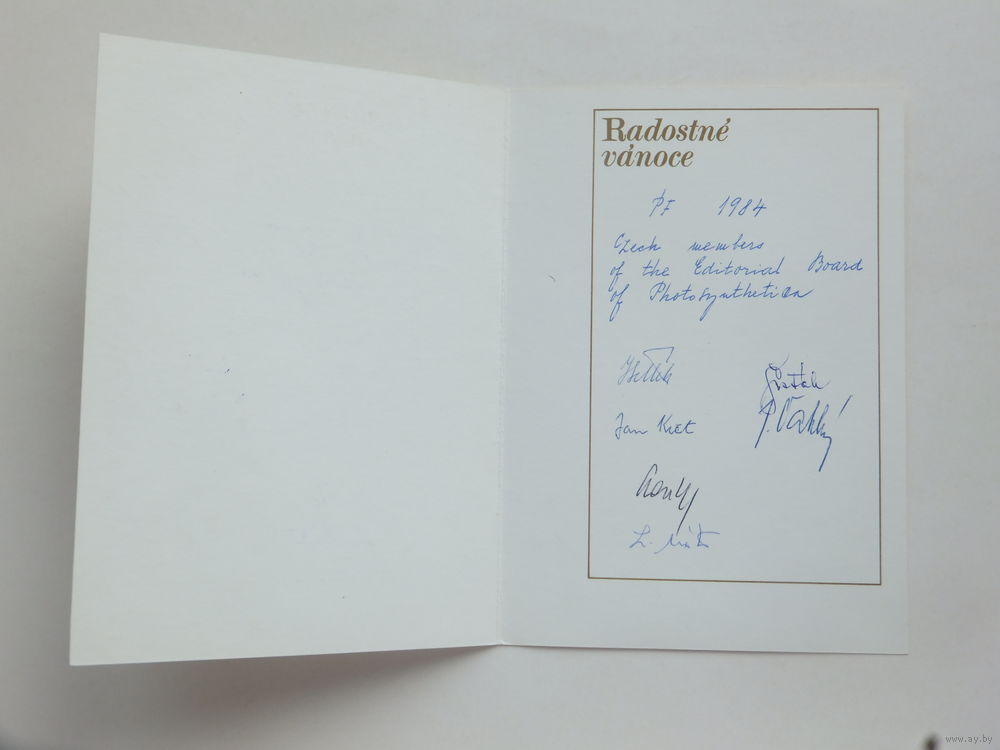 Radostné
vánoce
PF 1984
Czech members
of the Editorial Board
of Photosynthetica
Šesták
Jan Květ
L.
www.ay.by